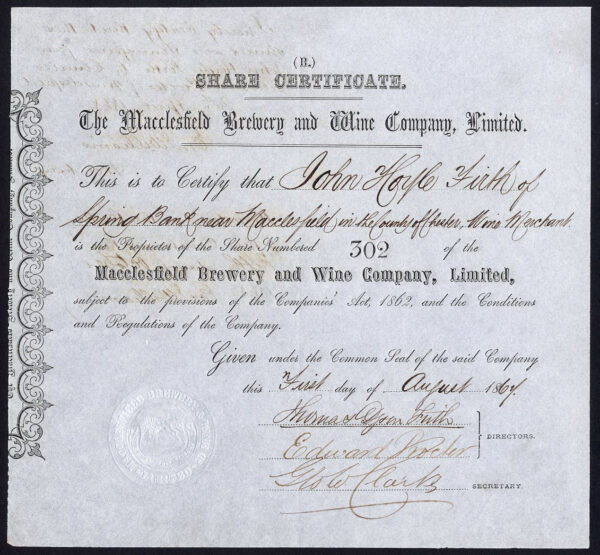 (B.)
SHARE CERTIFICATE.
The Macclesfield Brewery and Wine Company, Limited.
This is to Certify that John Hoyle Firth of
Spring Bank near Macclesfield in the County of Chester, Wine Merchant
is the Proprietor of the Share Numbered 302 of the
Macclesfield Brewery and Wine Company, Limited,
subject to the provisions of the Companies' Act, 1862, and the Conditions
and Regulations of the Company.
Given under the Common Seal of the said Company
this First day of August 1867.
Thomas Firth
DIRECTORS.
Edward
Geo W Clark
SECRETARY.
The Macclesfield Brewery and Wine Company